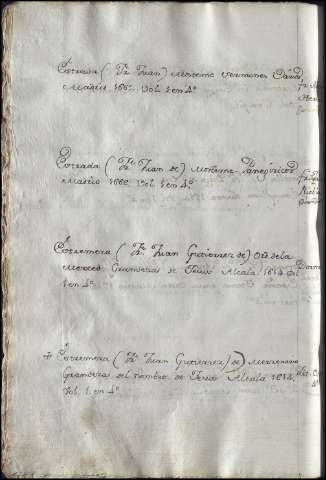 Estrada (Fr. Juan) Mostense Sermones
Madrid 1662. Vol. 1 en 4º
Estrada (Fr. Juan de) Mostense
Madrid 1662 Vol. 1 en 4º
Estremera (Fr. Juan Gutierrez de) Ordn de la
Merced. Grandezas de Jesus Alcala 1614. Vol.
1 en 4º
Estremera (Fr. Juan Gutierrez) de Mercenario
Grandezas del nombre de Jesus Alcala 1614.
Vol. 1. en 4º